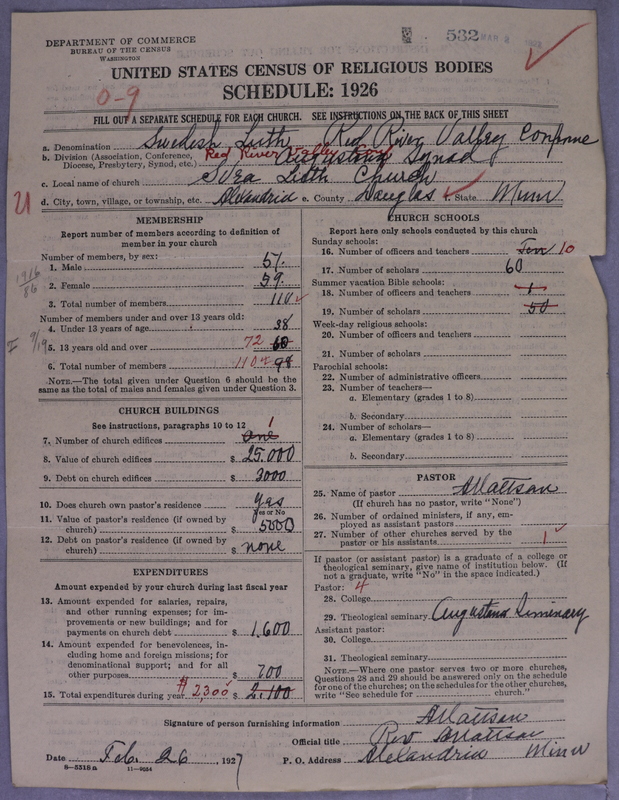 DEPARTMENT OF COMMERCE
BUREAU OF THE CENSUS
WASHINGTON
532
UNITED STATES CENSUS OF RELIGIOUS BODIES
SCHEDULE: 1926
0-9
FILL OUT A SEPARATE SCHEDULE FOR EACH CHURCH. SEE INSTRUCTIONS ON THE BACK OF THIS SHEET
a. Denomination Swedish Luth Red River Valley Conf
b. Division (Association, Conference, Diocese, Presbytery, Synod, etc.) Red River Valley Augustana Synod
c. Local name of church Svea Luth Church
21
d. City, town, village, or township, etc. Alexandria e. County Douglas f. State Minn
MEMBERSHIP
Report number of members according to definition of
member in your church
Number of members, by sex:
1. Male 51.
2. Female 59.
3. Total number of members 110
1916
86
Number of members under and over 13 years old:
4. Under 13 years of age 38
I 9/19
5. 13 years old and over 72 60
6. Total number of members 110 98
NOTE.—The total given under Question 6 should be the
same as the total of males and females given under Question 3.
CHURCH BUILDINGS
See instructions, paragraphs 10 to 12
7. Number of church edifices One 1
8. Value of church edifices $ 25.000
9. Debt on church edifices $ 3000
10. Does church own pastor's residence yes
Yes or No
11. Value of pastor's residence (if owned by
church) $ 5000
12. Debt on pastor's residence (if owned by
church) $ none
EXPENDITURES
Amount expended by your church during last fiscal year
13. Amount expended for salaries, repairs,
and other running expenses; for im-
provements or new buildings; and for
payments on church debt $ 1,600
14. Amount expended for benevolences, in-
cluding home and foreign missions; for
denominational support; and for all
other purposes $ 700
15. Total expenditures during year $2,300 $ 2,100
CHURCH SCHOOLS
Report here only schools conducted by this church
Sunday schools:
16. Number of officers and teachers Ten 10
17. Number of scholars 60
Summer vacation Bible schools:
18. Number of officers and teachers 1
19. Number of scholars 50
Week-day religious schools:
20. Number of officers and teachers
21. Number of scholars
Parochial schools:
22. Number of administrative officers
23. Number of teachers—
a. Elementary (grades 1 to 8)
b. Secondary
24. Number of scholars—
a. Elementary (grades 1 to 8)
b. Secondary
PASTOR
25. Name of pastor A Mattson
(If church has no pastor, write "None")
26. Number of ordained ministers, if any, em-
ployed as assistant pastors
27. Number of other churches served by the
pastor or his assistants 1
If pastor (or assistant pastor) is a graduate of a college or
theological seminary, give name of institution below. (If
not a graduate, write "No" in the space indicated.)
Pastor: 4
28. College
29. Theological seminary Augustana Seminary
Assistant pastor:
30. College
31. Theological seminary
NOTE.—Where one pastor serves two or more churches,
Questions 28 and 29 should be answered only on the schedule
for one of the churches; on the schedules for the other churches,
write "See schedule for church."
Signature of person furnishing information A Mattson
Official title Rev Mattson
Date Feb. 26, 1927 P. O. Address Alexandria Minn
8-5318a 11-9584